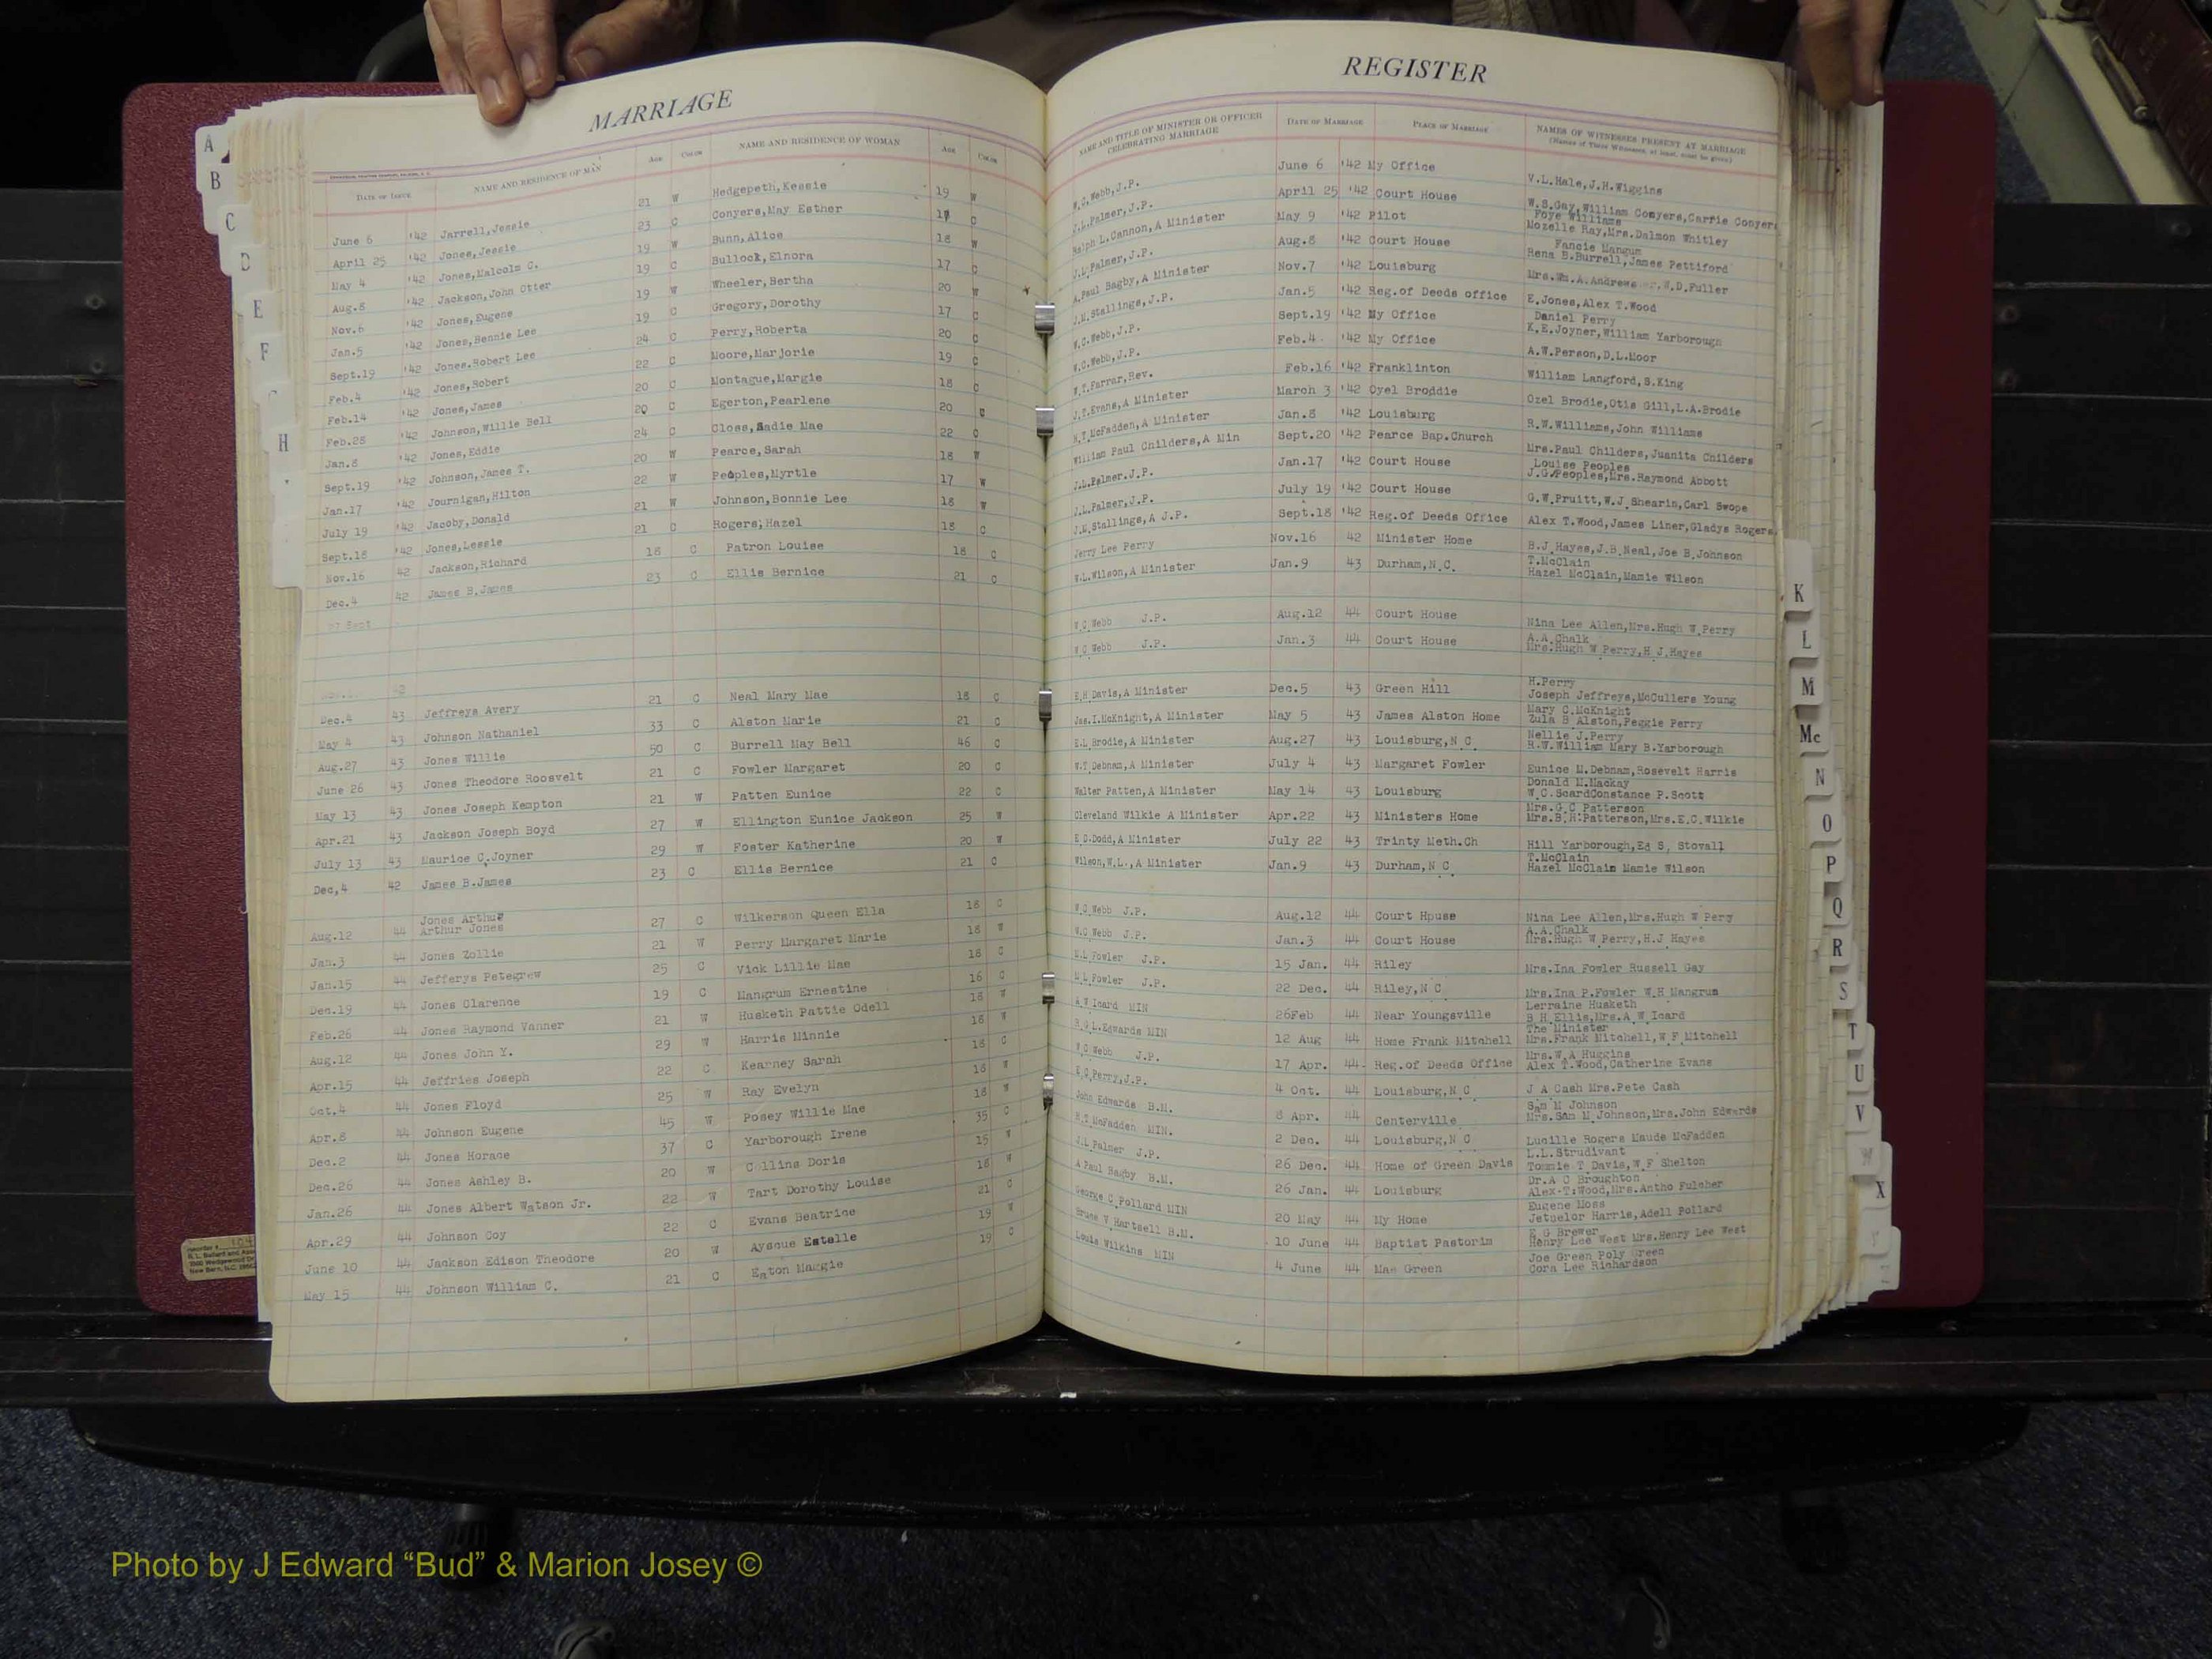 MARRIAGE
DATE OF ISSUE NAME AND RESIDENCE OF MAN AGE COLOR NAME AND RESIDENCE OF WOMAN AGE COLOR
June 6 '42 Jarrell,Jessie 21 W Hedgepeth,Kessie 19 W
April 25 '42 Jones,Jessie 23 C Conyers,May Esther C
May 4 '42 Jones,Malcolm C. 19 W Bunn,Alice 18 W
Aug.8 '42 Jackson,John Otter 19 C Bullock,Elnora 17 C
Nov.6 '42 Jones,Eugene 19 W Wheeler,Bertha 20 W
Jan.5 '42 Jones,Bennie Lee 19 C Gregory,Dorothy 17 C
Sept.19 '42 Jones.Robert Lee 24 C Perry,Roberta 20 C
Feb.4 '42 Jones,Robert 22 C Moore,Marjorie 19 C
Feb.14 '42 Jones,James 20 C Montague,Margie 18 C
Feb.28 '42 Johnson,Willie Bell 20 C Egerton,Pearlene 20
Jan.8 '42 Jones,Eddie 24 C Closs,Sadie Mae 22 C
Sept.19 '42 Johnson,James T. 20 W Pearce,Sarah 18 W
Jan.17 '42 Journigan,Hilton 22 W Peoples,Myrtle 17 W
July 19 '42 Jacoby,Donald 21 W Johnson,Bonnie Lee 18 W
Sept.18 '42 Jones,Lessie 21 C Rogers,Hazel 18 C
Nov.16 42 Jackson,Richard 18 C Patron Louise 18 C
Dec.4 42 James B.James 23 C Ellis Bernice 21 C
27 Sept
42
Dec.4 43 Jeffreys Avery 21 C Neal Mary Mae 18 C
May 4 43 Johnson Nathaniel 33 C Alston Marie 21 C
Aug.27 43 Jones Willie 50 C Burrell May Bell 46 C
June 26 43 Jones Theodore Roosvelt 21 C Fowler Margaret 20 C
May 13 43 Jones Joseph Kempton 21 W Patten Eunice 22 C
Apr.21 43 Jackson Joseph Boyd 27 W Ellington Eunice Jackson 25 W
July 13 43 Maurice C.Joyner 29 W Foster Katherine 20 W
Dec,4 42 James B.James 23 C Ellis Bernice 21 C
Jones Arthur
Aug.12 44 Arthur Jones 27 C Wilkerson Queen Ella 18 C
Jan.3 44 Jones Zollie 21 W Perry Margaret Marie 18 W
Jan.15 44 Jefferys Petegrew 25 C Vick Lillie Mae 18 C
Dec.19 44 Jones Clarence 19 C Mangrum Ernestine 16 C
Feb.26 44 Jones Raymond Vanner 21 W Husketh Pattie Odell 18 W
Aug.12 44 Jones John Y. 29 W Harris Minnie 18 W
Apr.15 44 Jeffries Joseph 22 C Kearney Sarah 18 C
Oct.4 44 Jones Floyd 25 W Ray Evelyn 18 W
Apr.8 44 Johnson Eugene 45 W Posey Willie Mae 18 W
Dec.2 44 Jones Horace 37 C Yarborough Irene 35 C
Dec.26 44 Jones Ashley B. 20 W Collins Doris 15 W
Jan.26 44 Jones Albert Watson Jr. 22 W Tart Dorothy Louise 18 W
Apr.29 44 Johnson Coy 22 C Evans Beatrice 21 C
June 10 44 Jackson Edison Theodore 20 W Ayscue Estelle 19 W
May 15 44 Johnson William C. 21 C Eaton Maggie 19 C
REGISTER
NAME AND TITLE OF MINISTER OR OFFICER CELEBRATING MARRIAGE DATE OF MARRIAGE PLACE OF MARRIAGE NAMES OF WITNESSES PRESENT AT MARRIAGE
(Names of Three Witnesses, at least, must be given)
W.C.Webb,J.P. June 6 '42 My Office V.L.Hale,J.H.Wiggins
J.L.Palmer,J.P. April 25 '42 Court House W.S.Gay,William Conyers,Carrie Conyers
Foye Williams
Ralph L.Cannon,A Minister May 9 '42 Pilot Mozelle Ray,Mrs.Dalmon Whitley
Fancie Mangum
J.L.Palmer,J.P. Aug.8 '42 Court House Rena B.Burrell,James Pettiford
A.Paul Bagby,A Minister Nov.7 '42 Louisburg Mrs.Wm.A.Andrews W.D.Fuller
J.M.Stallings,J.P. Jan.5 '42 Reg.of Deeds office E.Jones,Alex T.Wood
Daniel Perry
W.C.Webb,J.P. Sept.19 '42 My Office K.E.Joyner,William Yarborough
W.C.Webb,J.P. Feb.4 '42 My Office A.W.Person,D.L.Moor
W.T.Farrar,Rev. Feb.16 '42 Franklinton William Langford,S.King
J.T.Evans,A Minister March 3 '42 Oyel Broddie Ozel Brodie,Otis Gill,L.A.Brodie
H.T.McFadden,A Minister Jan.8 '42 Louisburg R.W.Williams,John Williams
William Paul Childers,A Min Sept.20 '42 Pearce Bap.Church Mrs.Paul Childers,Juanita Childers
Louise Peoples
J.L.Palmer.J.P. Jan.17 '42 Court House J.G.Peoples,Mrs.Raymond Abbott
J.L.Palmer,J.P. July 19 '42 Court House G.W.Pruitt,W.J.Shearin,Carl Swope
J.M.Stallings,A J.P. Sept.18 '42 Reg.of Deeds Office Alex T.Wood,James Liner,Gladys Rogers
Jerry Lee Perry Nov.16 42 Minister Home B.J.Hayes,J.B.Neal,Joe B.Johnson
T.McClain
W.L.Wilson,A Minister Jan.9 43 Durham,N.C. Hazel McClain,Mamie Wilson
W.C.Webb J.P. Aug.12 44 Court House Nina Lee Allen,Mrs.Hugh W.Perry
A.A.Chalk
W.C.Webb J.P. Jan.3 44 Court House Mrs.Hugh W Perry,H.J.Hayes
H.Perry
E.H.Davis,A Minister Dec.5 43 Green Hill Joseph Jeffreys,McCullers Young
Mary C.McKnight
Jas.I.McKnight,A Minister May 5 43 James Alston Home Zula B Alston,Peggie Perry
Nellie J.Perry
E.L.Brodie,A Minister Aug.27 43 Louisburg,N.C. R.W.William Mary B.Yarborough
W.T.Debnam,A Minister July 4 43 Margaret Fowler Eunice M.Debnam,Rosevelt Harris
Donald M.Mackay
Walter Patten,A Minister May 14 43 Louisburg W.C.ScardConstance P.Scott
Mrs.G.C Patterson
Cleveland Wilkie A Minister Apr.22 43 Ministers Home Mrs.B.H.Patterson,Mrs.E.C.Wilkie
E D.Dodd,A Minister July 22 43 Trinty Meth.Ch Hill Yarborough,Ed S. Stovall
T.McClain
Wilson,W.L.,A Minister Jan.9 43 Durham,N.C. Hazel McClain Mamie Wilson
W.C.Webb J.P. Aug.12 44 Court Hpuse Nina Lee Allen,Mrs.Hugh W Pery
A.A.Chalk
W.C.Webb J.P. Jan.3 44 Court House Mrs.Hugh W Perry,H.J Hayes
M.L.Fowler J.P. 15 Jan. 44 Riley Mrs.Ina Fowler Russell Gay
M.L.Fowler J.P. 22 Dec. 44 Riley,N C Mrs.Ina P.Fowler W.H Mangrum
Lerraine Husketh
A W Icard MIN 26Feb 44 Near Youngsville B H.Ellis,Mrs.A W Icard
The Minister
R.G.L.Edwards MIN 12 Aug 44 Home Frank Mitchell Mrs.Frank Mitchell,W F Mitchell
Mrs.W A Huggins
W C Webb J.P. 17 Apr. 44 Reg.of Deeds Office Alex T.Wood,Catherine Evans
E C Perry,J.P. 4 Oct. 44 Louisburg,N C J A Cash Mrs.Pete Cash
Sam M Johnson
John Edwards B.M. 8 Apr. 44 Centerville Mrs.Sam M Johnson,Mrs.John Edwards
H.T McFadden MIN. 2 Dec. 44 Louisburg,N C Lucille Rogers Maude McFadden
L.L.Strudivant
J.L Palmer J.P. 26 Dec. 44 Home of Green Davis Tommie T Davis,W F Shelton
Dr.A C Broughton
A Paul Bagby B.M. 26 Jan. 44 Louisburg Alex.T.Wood,Mrs.Antho Fulcher
Eugene Moss
George C Pollard MIN 20 May 44 My Home Jetuelor Harris,Adell Pollard
E G Brewer
Bruce V Hartsell B.M. 10 June 44 Baptist Pastorim Henry Lee West Mrs.Henry Lee West
Joe Green Poly Green
Louis Wilkins MIN 4 June 44 Mae Green Cora Lee Richardson
A
B
C
D
E
F
H
K
L
M
Mc
N
O
P
Q
R
S
T
U
V
W
X
Y
Photo by J Edward “Bud” & Marion Josey ©